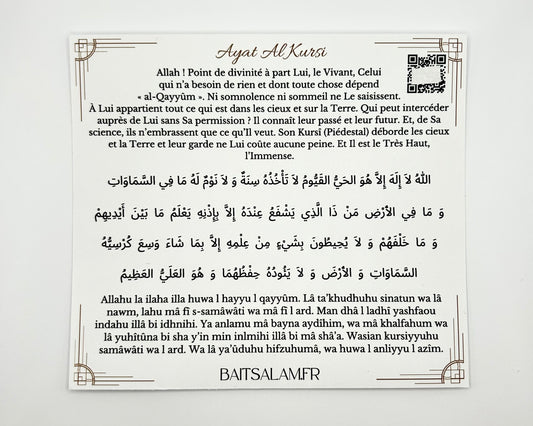 Ayat Al Kursi
Allah ! Point de divinité à part Lui, le Vivant, Celui
qui n'a besoin de rien et dont toute chose dépend
« al-Qayyûm ». Ni somnolence ni sommeil ne Le saisissent.
À Lui appartient tout ce qui est dans les cieux et sur la Terre. Qui peut intercéder
auprès de Lui sans Sa permission ? Il connaît leur passé et leur futur. Et, de Sa
science, ils n'embrassent que ce qu'Il veut. Son Kursî (Piédestal) déborde les cieux
et la Terre et leur garde ne Lui coûte aucune peine. Et Il est le Très Haut,
l'Immense.
اللهُ لاَ إِلَهَ إِلاَّ هُوَ الحَيُّ القَيُّومُ لاَ تَأْخُذُهُ سِنَةٌ وَ لاَ نَوْمٌ لَهُ مَا فِي السَّمَاوَاتِ
وَ مَا فِي الأَرْضِ مَنْ ذَا الَّذِي يَشْفَعُ عِنْدَهُ إِلاَّ بِإِذْنِهِ يَعْلَمُ مَا بَيْنَ أَيْدِيهِمْ
وَ مَا خَلْفَهُمْ وَ لاَ يُحِيطُونَ بِشَيْءٍ مِنْ عِلْمِهِ إِلاَّ بِمَا شَاءَ وَسِعَ كُرْسِيُّهُ
السَّمَاوَاتِ وَ الأَرْضَ وَ لاَ يَئُودُهُ حِفْظُهُمَا وَ هُوَ العَلَيُّ العَظِيمُ
Allahu la ilaha illa huwa l hayyu l qayyûm. Lâ ta'khudhuhu sinatun wa lâ
nawm, lahu mâ fî s-samâwâti wa mâ fî l ard. Man dhâ l ladhî yashfaou
indahu illâ bi idhnihi. Ya anlamu mâ bayna aydîhim, wa mâ khalfahum wa
lâ yuhîtûna bi sha y'in min inlmihi illâ bi mâ shâ'a. Wasian kursiyyuhu
samâwâti wa l ard. Wa lâ ya'ûduhu hifzuhumâ, wa huwa l anliyyu l azîm.
BAITSALAM.FR